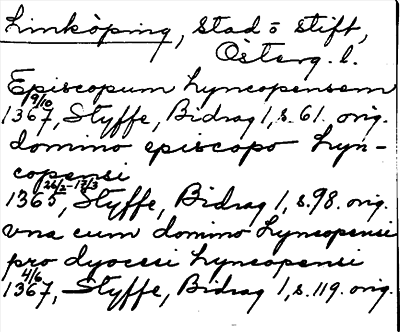 Linköping, stad o stift,
Österg. l.
Episcopum Lyncopensem
1367 9/10, Styffe, Bidrag 1, s. 61. orig.
domino episcopo Lyn-
copensi
1365 26/2-17/3, Styffe, Bidrag 1, s. 98. orig.
vna cum domino Lyncopensi
pro dyocesi Lyncopensi
1367 4/6, Styffe, Bidrag 1, s. 119. orig.